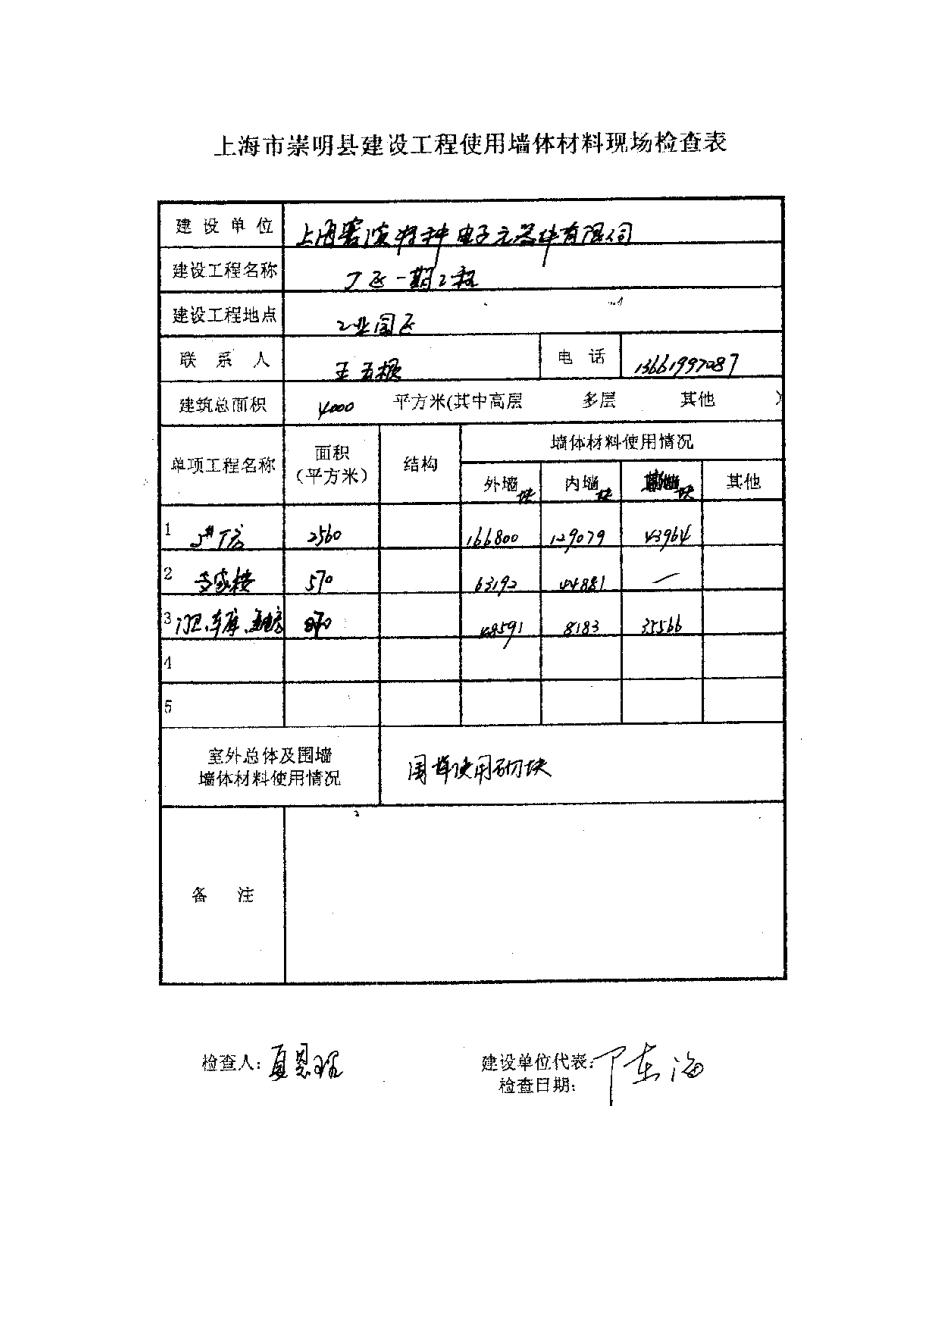 上海市崇明县建设工程使用墙体材料现场检查表
建设单位 上海 特种电子元器件有限公司
建设工程名称 厂区一期工程
建设工程地点 工业园区
联系人 王五根 电话 13661997087
建筑总面积 4000 平方米(其中高层 多层 其他 )
墙体材料使用情况
单项工程名称 面积 结构
(平方米)
外墙 块 内墙 块 块 其他
1 5#厂房 2560 166800 129079 43964
2 570 63192 44881 —
3 门卫、车库、 870 48591 8183 35566
4
5
室外总体及围墙
墙体材料使用情况
围墙使用砌块
备注
检查人: 夏
建设单位代表: 东海
检查日期: